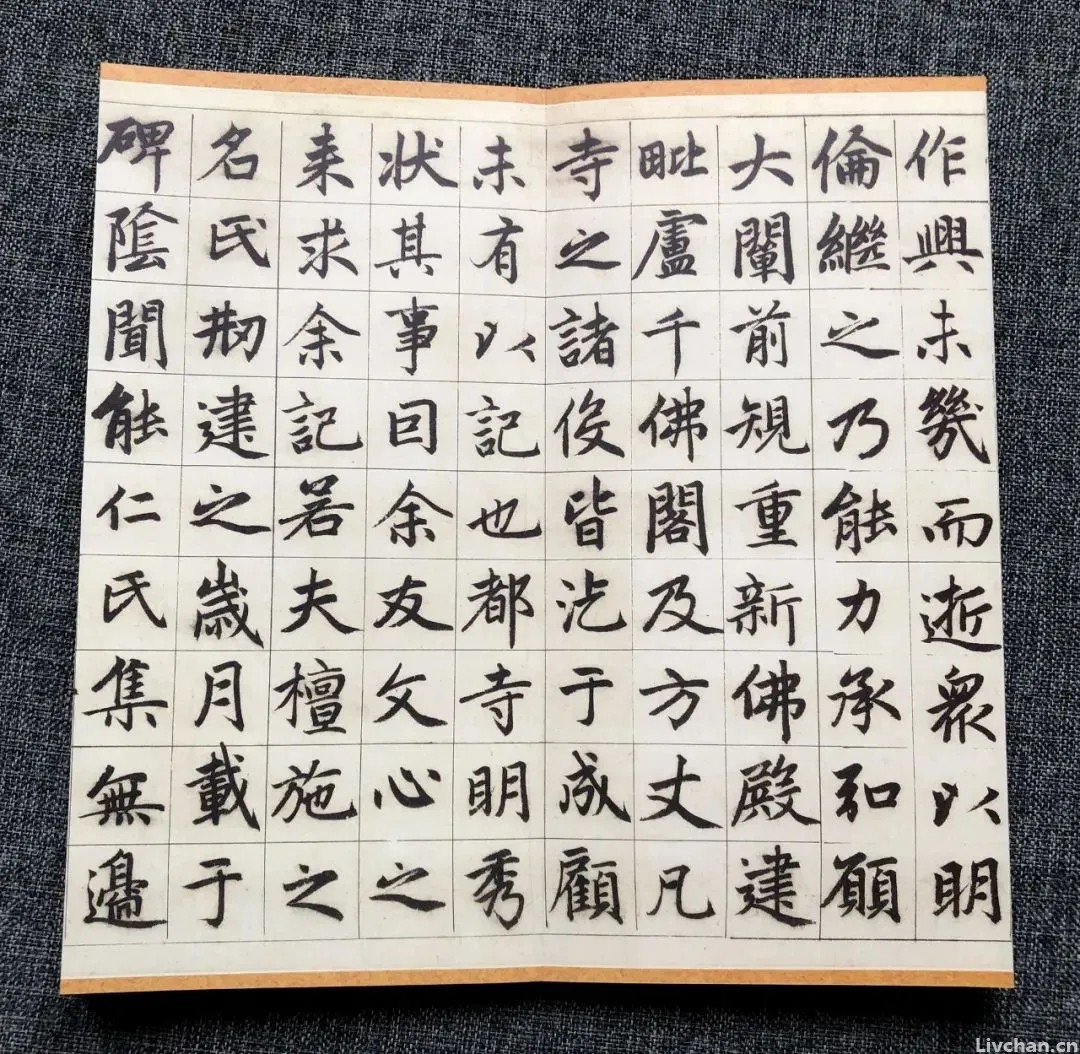 作興未幾而逝衆以明
倫繼之乃能力承弘願
大闡前規重新佛殿建
毗盧千佛閣及方丈凡
寺之諸役皆汔于成顧
未有以記也都寺明秀
狀其事囙余友文心之
来求余記若夫檀施之
名氏刱建之歲月載于
碑陰聞能仁氏集無邊
Livchan.cn